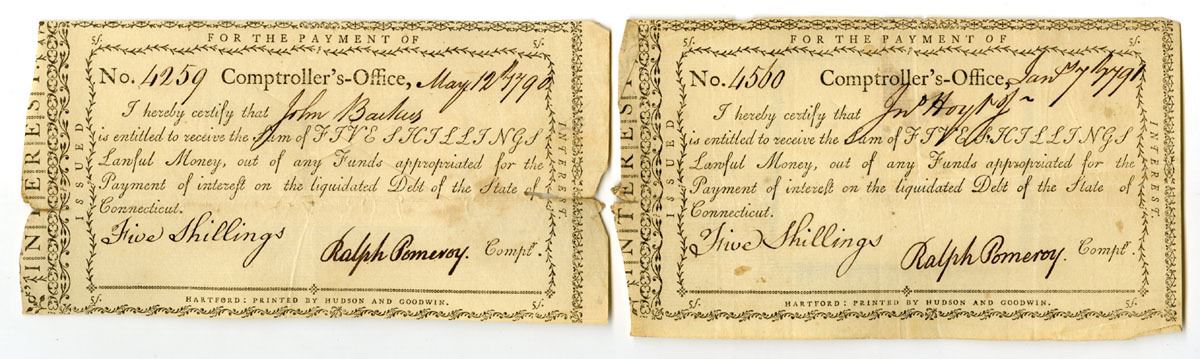 FOR THE PAYMENT OF
5/. 5/.
No. 4259 Comptroller's-Office, May 12th 1790
I hereby certify that John Backus
is entitled to receive the Sum of FIVE SHILLINGS
Lawful Money, out of any Funds appropriated for the
Payment of interest on the liquidated Debt of the State of
Connecticut.
Five Shillings
Ralph Pomeroy. Comptr.
ISSUED
INTEREST.
HARTFORD: PRINTED BY HUDSON AND GOODWIN.
5/. 5/.
FOR THE PAYMENT OF
5/. 5/.
No. 4560 Comptroller's-Office, Jany 7th 1791
I hereby certify that Jno Hoyt Jr
is entitled to receive the Sum of FIVE SHILLINGS
Lawful Money, out of any Funds appropriated for the
Payment of interest on the liquidated Debt of the State of
Connecticut.
Five Shillings
Ralph Pomeroy. Comptr.
ISSUED
INTEREST.
HARTFORD: PRINTED BY HUDSON AND GOODWIN.
5/. 5/.